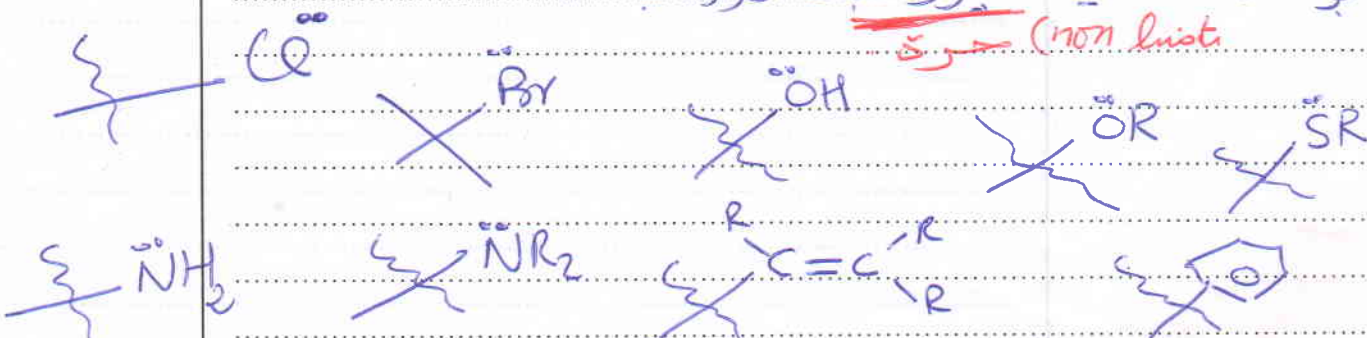 حرة (non liist
Cl Br OH OR SR
NH2 NR2 R C=C R R